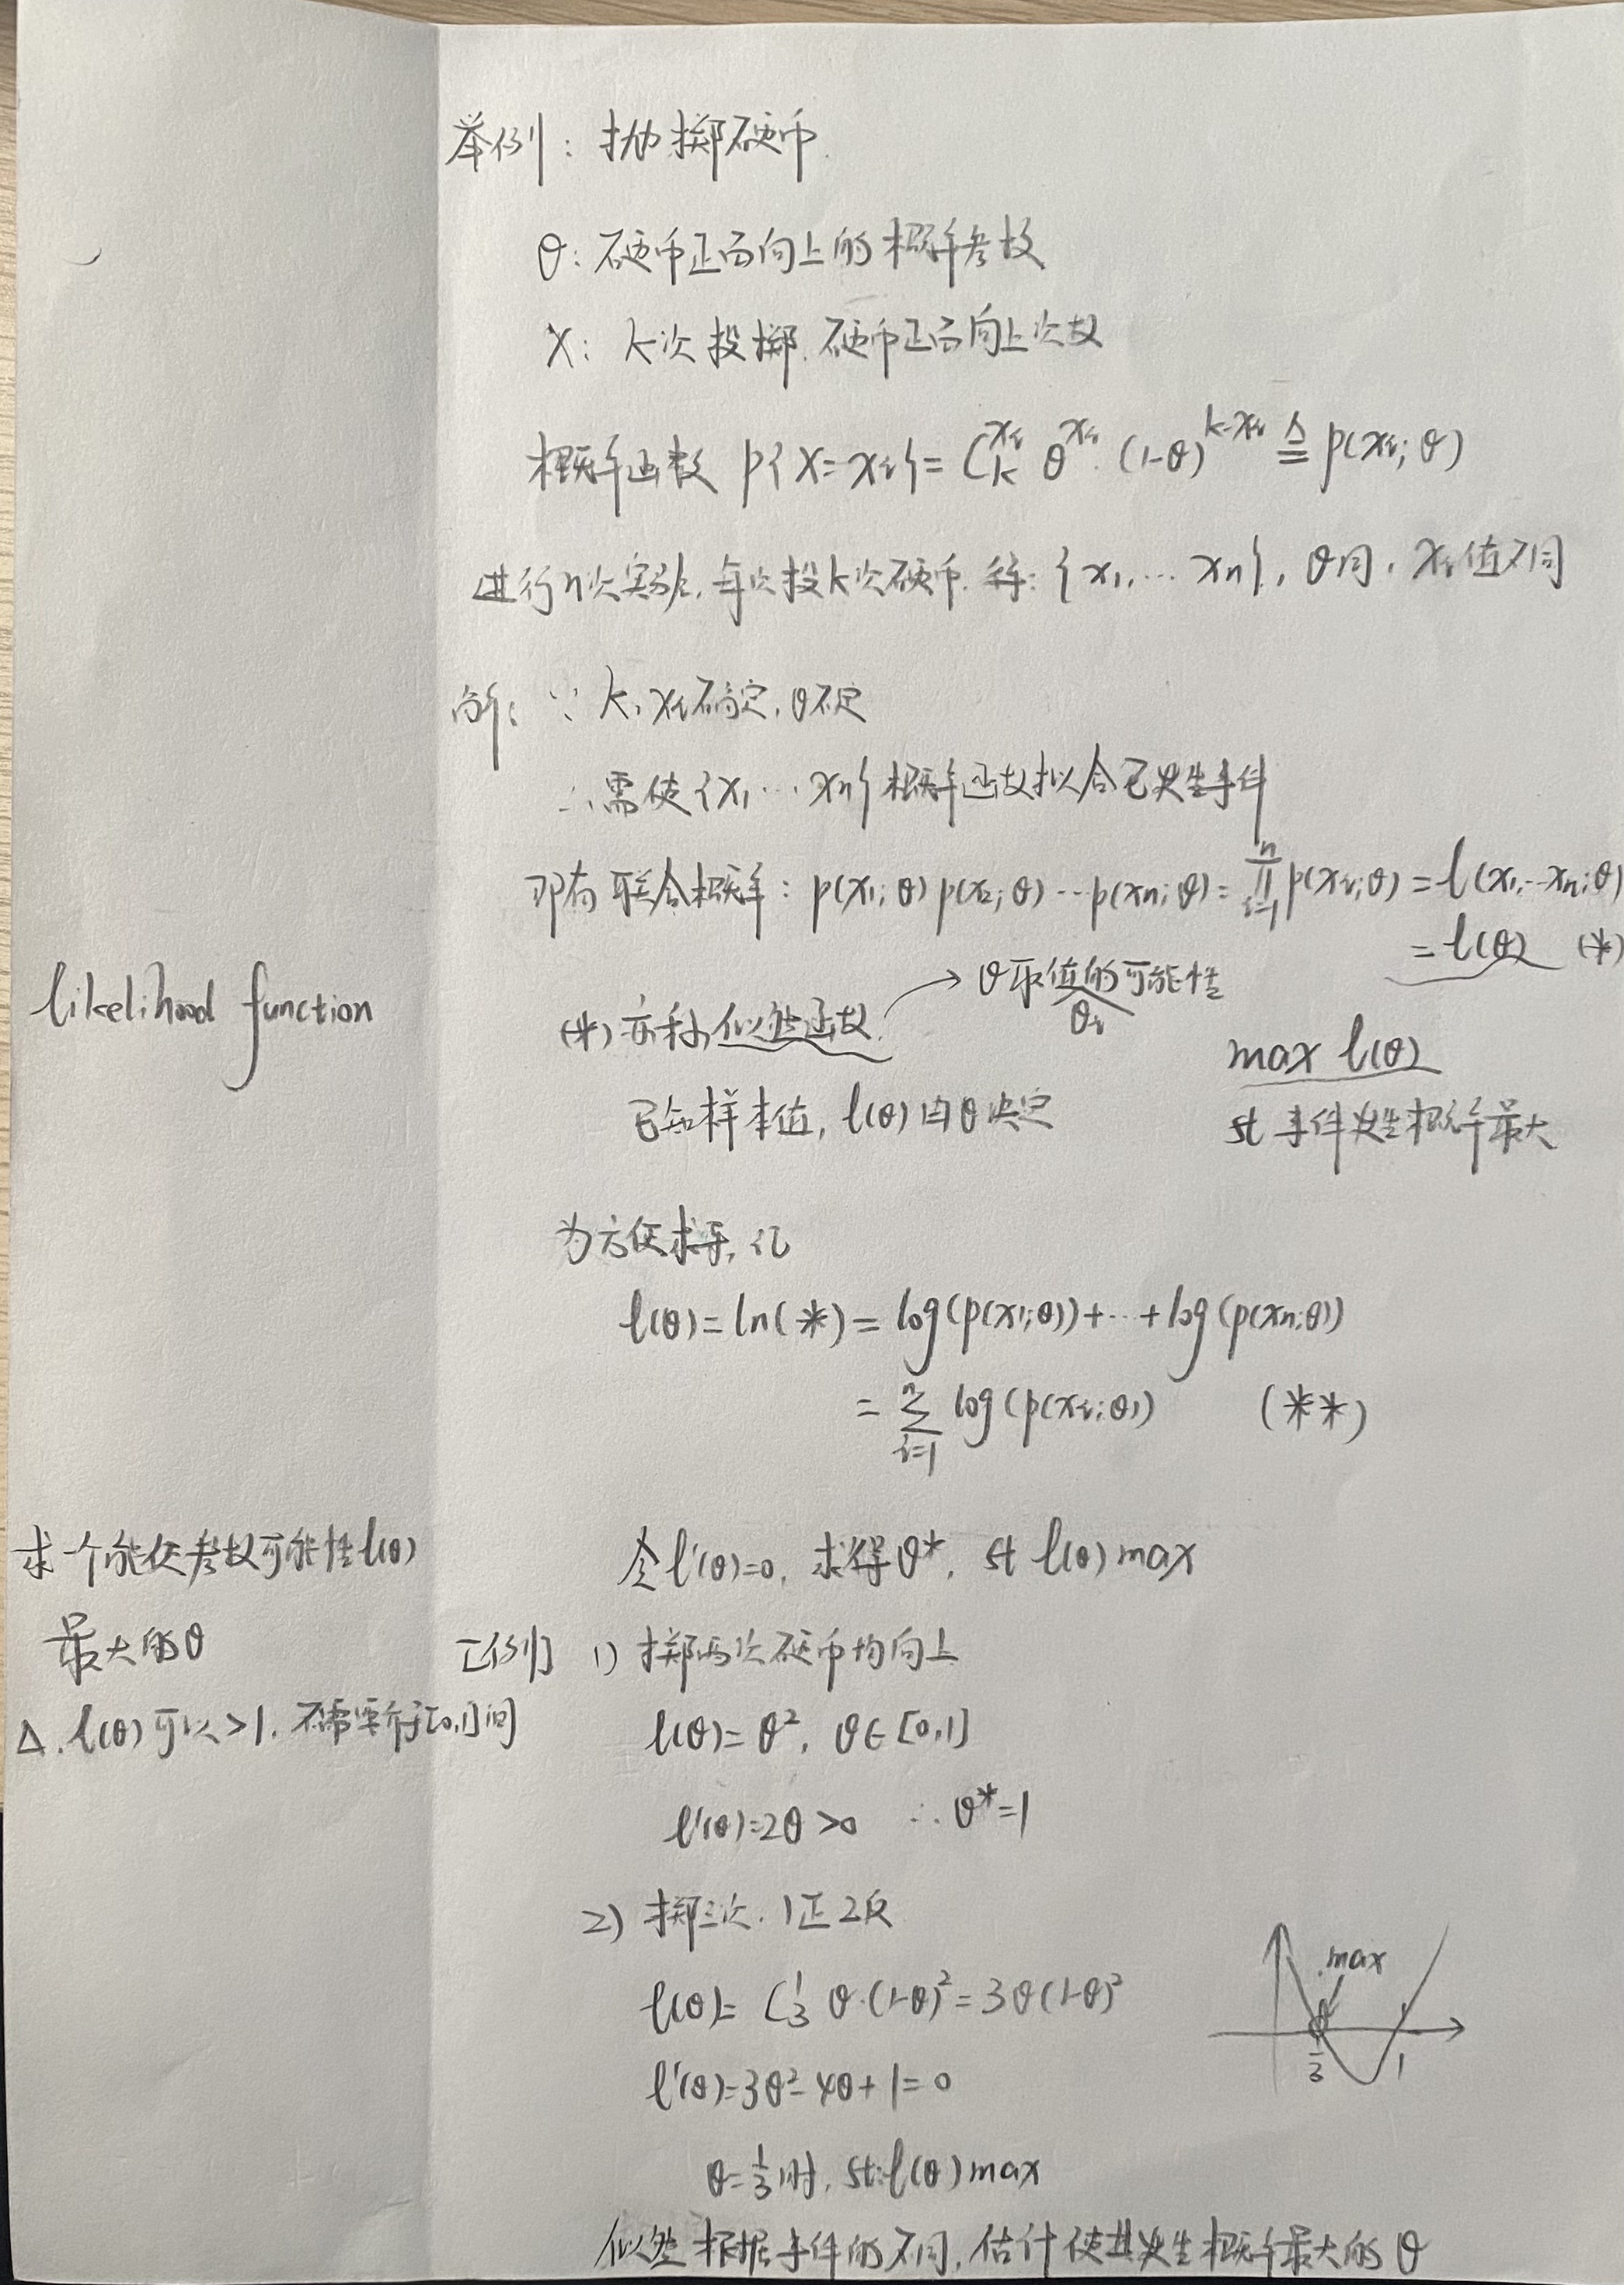 举例：抛掷硬币.
θ: 硬币正面向上的概率参数
X: k次投掷. 硬币正面向上次数
概率函数 p{X=xᵢ}= C_k^{xᵢ} θ^{xᵢ}·(1-θ)^{k-xᵢ} ≜ p(xᵢ; θ)
进行n次实验, 每次投k次硬币. 称: {x₁, … xₙ}, θ同, xᵢ值不同
解: ∵ k, xᵢ 确定, θ不定
∴ 需使{x₁ … xₙ}概率函数拟合已发生事件
即有 联合概率: p(x₁; θ) p(x₂; θ) … p(xₙ; θ) = ∏_{i=1}^{n} p(xᵢ; θ) = l(x₁, … xₙ; θ)
= l(θ) (*)
likelihood function
(*) 亦称似然函数. → θ取值的可能性
θᵢ
max l(θ)
已知样本值, l(θ)由θ决定
st 事件发生概率最大
为方便求导, 记
l(θ) = ln(*) = log(p(x₁; θ)) + … + log(p(xₙ; θ))
= ∑_{i=1}^{n} log(p(xᵢ; θ)) (**)
求一个能使参数可能性l(θ)
最大的θ
Δ. l(θ)可以>1. 不需要介于[0,1]间
令l'(θ)=0, 求得θ*, st l(θ) max
[例] 1) 掷两次硬币均向上
l(θ) = θ², θ∈[0,1]
l'(θ)=2θ>0 ∴ θ*=1
2) 掷三次. 1正2反
l(θ)= C_3^1 θ·(1-θ)² = 3θ(1-θ)²
max
1/3 1
l'(θ)=3θ²-4θ+1=0
θ=1/3时, st l(θ) max
似然根据事件的不同, 估计使其发生概率最大的θ